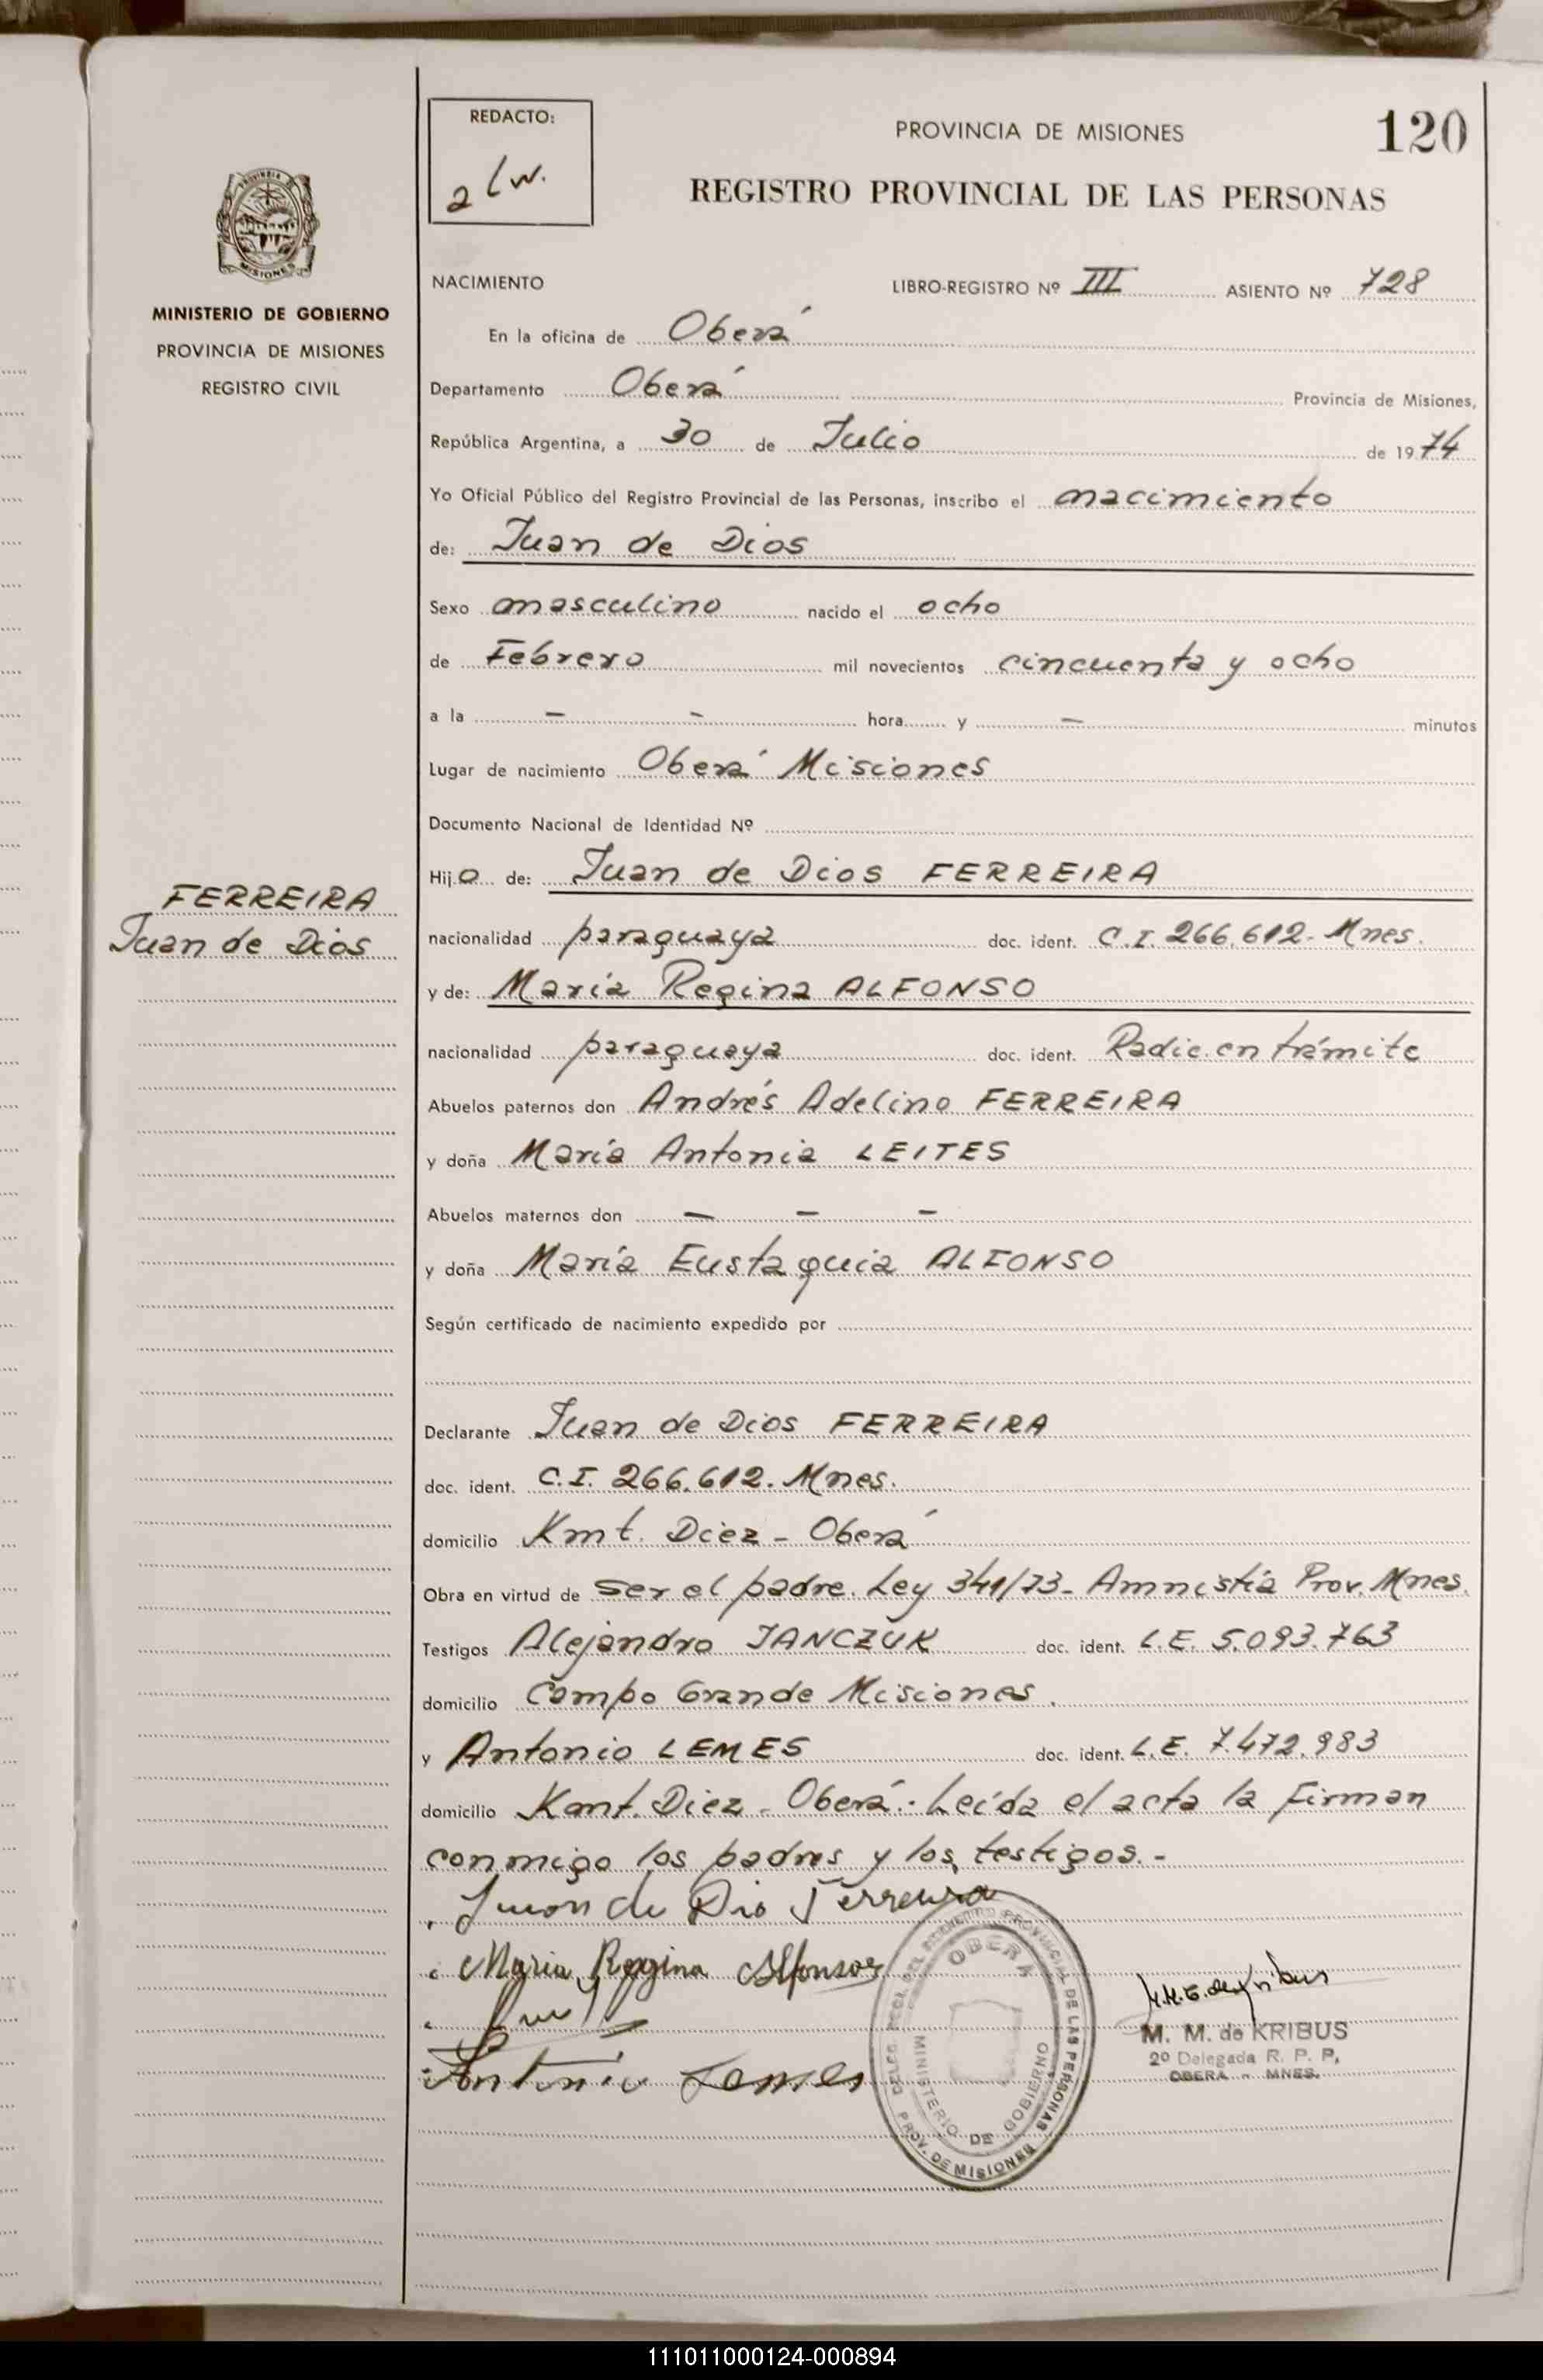 REDACTO:
PROVINCIA DE MISIONES
120
REGISTRO PROVINCIAL DE LAS PERSONAS
PROVINCIA
MISIONES
MINISTERIO DE GOBIERNO
PROVINCIA DE MISIONES
REGISTRO CIVIL
FERREIRA
Juan de Dios
NACIMIENTO LIBRO-REGISTRO Nº III ASIENTO Nº 728
En la oficina de Oberá
Departamento Oberá Provincia de Misiones,
República Argentina, a 30 de Julio de 1974
Yo Oficial Público del Registro Provincial de las Personas, inscribo el nacimiento
de: Juan de Dios
Sexo masculino nacido el ocho
de Febrero mil novecientos cincuenta y ocho
a la — - hora y — minutos
Lugar de nacimiento Oberá Misiones
Documento Nacional de Identidad Nº
Hijo de: Juan de Dios FERREIRA
nacionalidad paraguaya doc. ident. C.I. 266.612- Mnes.
y de: María Regina ALFONSO
nacionalidad paraguaya doc. ident. Radic. en trámite
Abuelos paternos don Andrés Adelino FERREIRA
y doña María Antonia LEITES
Abuelos maternos don — — —
y doña María Eustaquia ALFONSO
Según certificado de nacimiento expedido por
Declarante Juan de Dios FERREIRA
doc. ident. C.I. 266.612. Mnes.
domicilio Kmt. Diez - Oberá
Obra en virtud de ser el padre. Ley 341/73- Amnistía Prov. Mnes.
Testigos Alejandro JANCZUK doc. ident. L.E. 5.093.763
domicilio Campo Grande Misiones.
y Antonio LEMES doc. ident. L.E. 7.472.983
domicilio Kmt. Diez - Oberá.- Leída el acta la firman
conmigo los padres y los testigos.-
Juon de Dio Ferreira
Maria Regina Alfonso
Antonio Lemes
DELEG. SECC. DEL REGISTRO PROVINCIAL DE LAS PERSONAS
OBERA
MINISTERIO DE GOBIERNO
PROV. DE MISIONES
M. M. de KRIBUS
2º Delegada R. P. P.
OBERA - MNES.
111011000124-000894